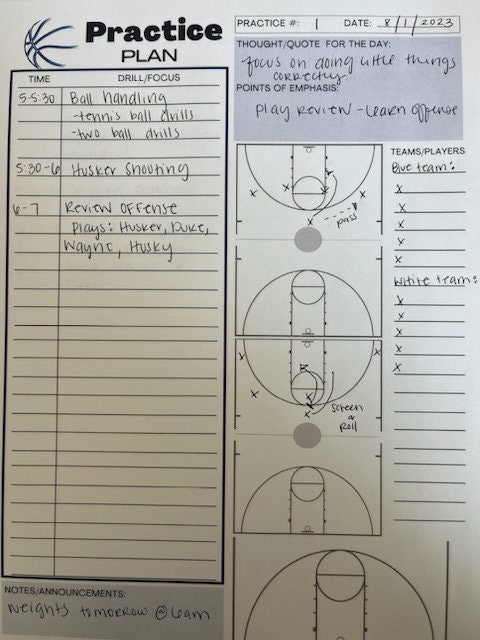 Practice
PLAN
PRACTICE #: 1 DATE: 8/1/2023
THOUGHT/QUOTE FOR THE DAY:
focus on doing little things
correctly
POINTS OF EMPHASIS:
Play Review - Learn offense
TIME DRILL/FOCUS
5-5:30 Ball handling
-tennis ball drills
-two ball drills
5:30-6 Husker Shooting
6-7 Review OFFense
Plays: Husker, Duke,
Wayne, Husky
NOTES/ANNOUNCEMENTS:
Weights tomorrow @ 6am
x x x x
x
pass
x x
x
x
x
Screen
&
Roll
TEAMS/PLAYERS
Blue team:
x
x
x
x
x
White team:
x
x
x
x
x